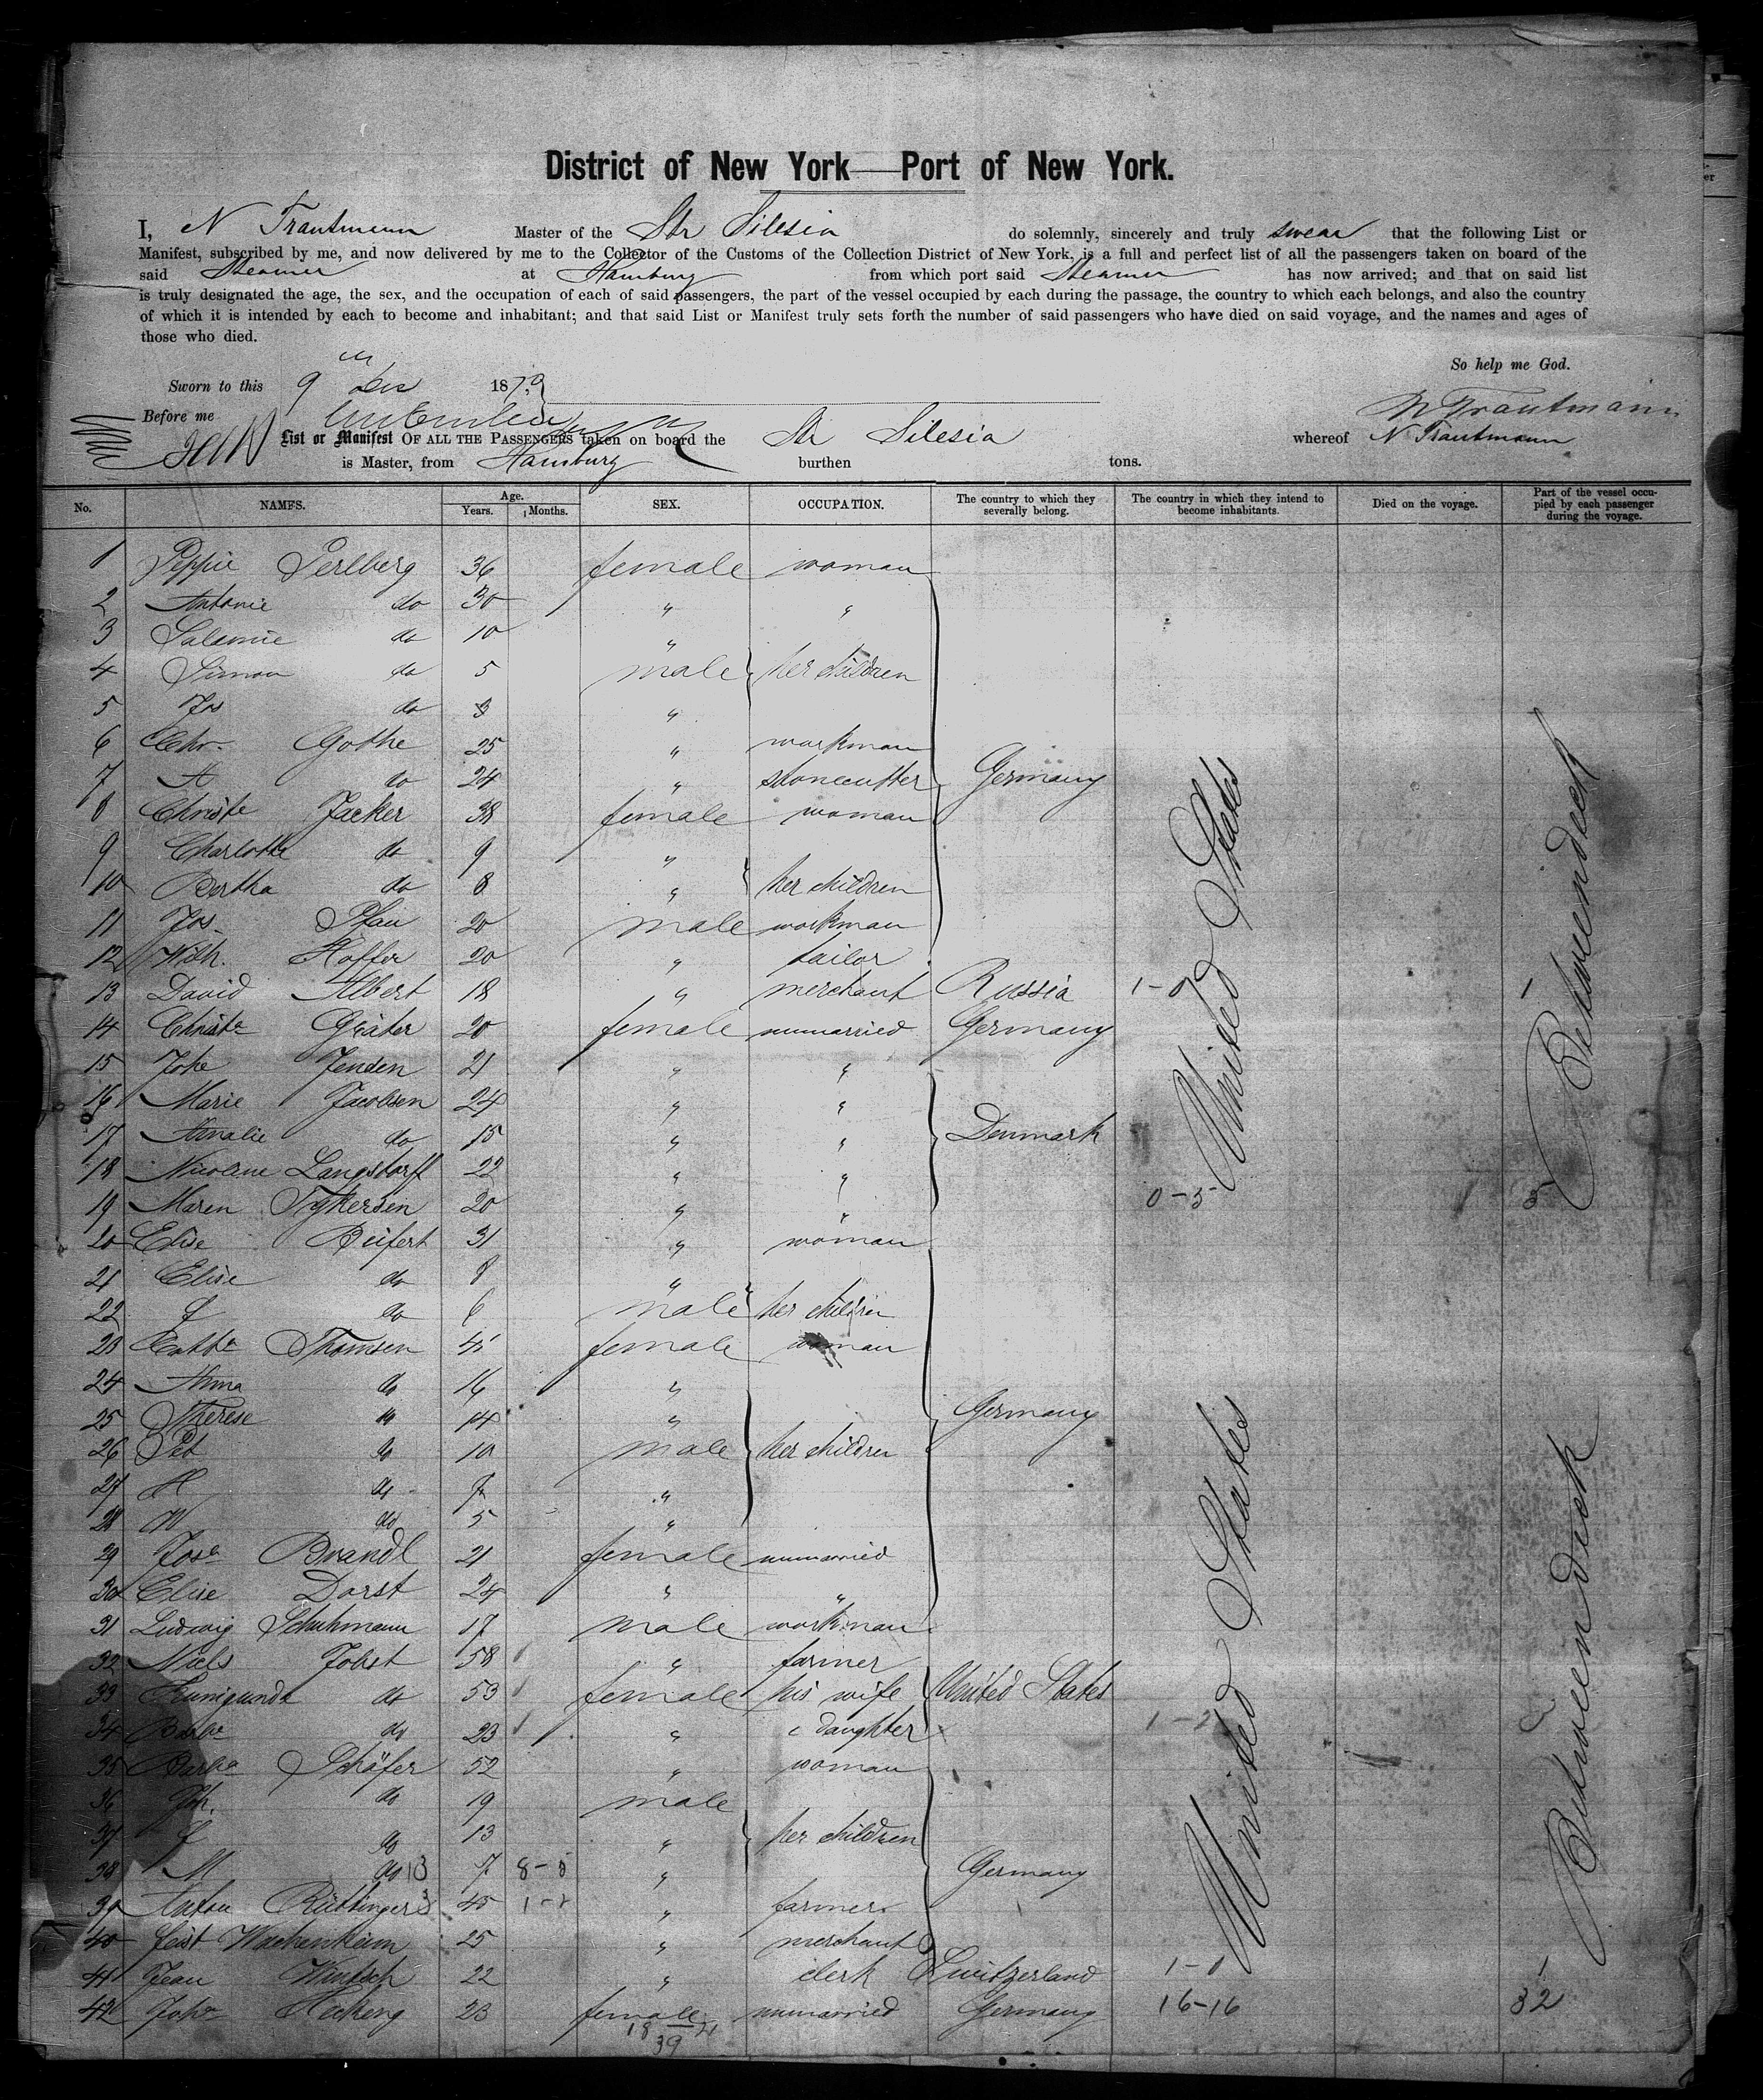 District of New York—Port of New York.
I, N Trautmann Master of the Str Silesia do solemnly, sincerely and truly swear that the following List or
Manifest, subscribed by me, and now delivered by me to the Collector of the Customs of the Collection District of New York, is a full and perfect list of all the passengers taken on board of the
said Steamer at Hamburg from which port said Steamer has now arrived; and that on said list
is truly designated the age, the sex, and the occupation of each of said passengers, the part of the vessel occupied by each during the passage, the country to which each belongs, and also the country
of which it is intended by each to become and inhabitant; and that said List or Manifest truly sets forth the number of said passengers who have died on said voyage, and the names and ages of
those who died.
So help me God.
Sworn to this 9th Dec 1879
Before me
N Trautmann
List or Manifest OF ALL THE PASSENGERS taken on board the Str Silesia whereof N Trautmann
is Master, from Hamburg burthen tons.
No. NAMES. Age. Years. Months. SEX. OCCUPATION. The country to which they severally belong. The country in which they intend to become inhabitants. Died on the voyage. Part of the vessel occupied by each passenger during the voyage.
1 Peppie Perlberg 36 female woman
2 Antonie do 30 " "
3 Salomie do 10 "
4 Simon do 5 male her children
5 Jos do 3 "
6 Chr. Gothe 25 " workman
7 A do 24 " stonecutter Germany
8 Christe Jacker 38 female woman
9 Charlotte do 9 "
10 Bertha do 8 " her children
11 Jos. Pfau 20 male workman
12 Wilh. Hoffer 20 " tailor
13 David Albert 18 " merchant Russia 1-0 1
14 Christe Gräter 20 female unmarried Germany
15 Joke Jensen 21 " "
16 Marie Jacobsen 24 " "
17 Amalie do 15 " " Denmark
18 Nicoline Langstorff 22 " "
19 Maren Tykersen 20 " " 0-5 5
United States Between deck
20 Elise Beifert 31 " woman
21 Elise do 8 "
22 f do 6 male her children
23 Cathe Thomsen 41 female woman
24 Anna do 16 "
25 Therese do 14 " Germany
26 Pet do 10 male her children
27 H do 7 "
28 W do 5 "
29 Josa Brandl 21 female unmarried
30 Elise Dorst 24 " "
31 Ludwig Schuhmann 17 male workman
32 Niels Jobst 58 " farmer
33 Kunigunde do 53 female his wife United States
34 Barba do 23 " " daughter 1-2 3
35 Barba Schäfer 52 " woman
36 Joh. do 19 male
37 f do 13 " her children
38 M do 13 7 8-5 " Germany
39 Anton Rüttinger 3 45 " farmer
40 Feist Wachenheim 25 " merchant
41 Jean Wintsch 22 " clerk Switzerland 1-0 1
42 Joha Heckeng 23 female unmarried Germany 16-16 32
United States Between deck
18 21
39